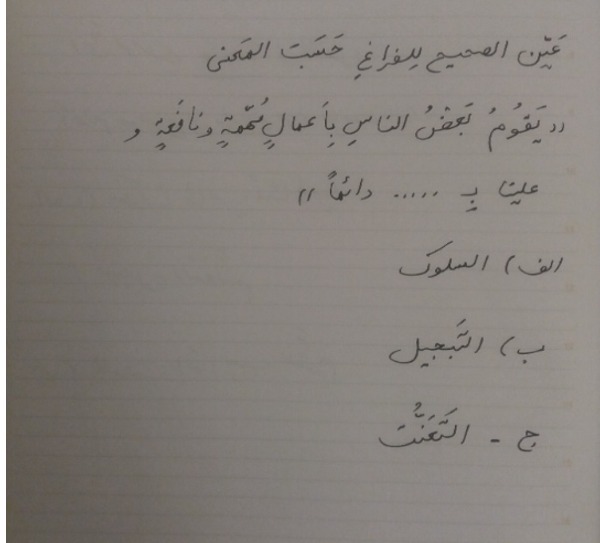 عَيِّن الصحیح لِلفراغِ حَسَبَ المعنی
« يَقُومُ بَعْضُ الناسِ بِأَعمالٍ مُهّمةٍ و نافَعةٍ و
علینا بِـ ..... دائماً »
الف) السلوک
ب) التَبجیل
ج - التَعَنُّت